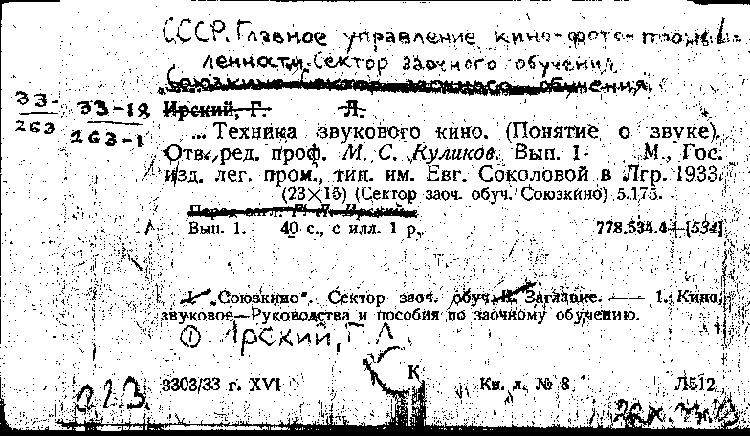 СССР. Главное управление кино-фото-промыш-
ленности. Сектор заочного обучения
Союзкино Сектор заочного обучения
33- 33-19 Ирский, Г. Л.
263 263-1
... Техника звукового кино. (Понятие о звуке).
Отв. ред. проф. М. С. Куликов. Вып. 1- М., Гос.
изд. лег. пром., тип. им. Евг. Соколовой в Лгр. 1933.
(23×15) (Сектор заоч. обуч. Союзкино) 5.175.
Перед загл.: Г. Л. Ирский.
Вып. 1. 40 с., с илл. 1 р. 778.534.4—[534]
I. "Союзкино". Сектор заоч. обуч. II. Заглавие. — 1. Кино,
звуковое—Руководства и пособия по заочному обучению.
① Ирский, Г. Л.
К
3303/33 г. XVI Кн. л. № 8 Л512